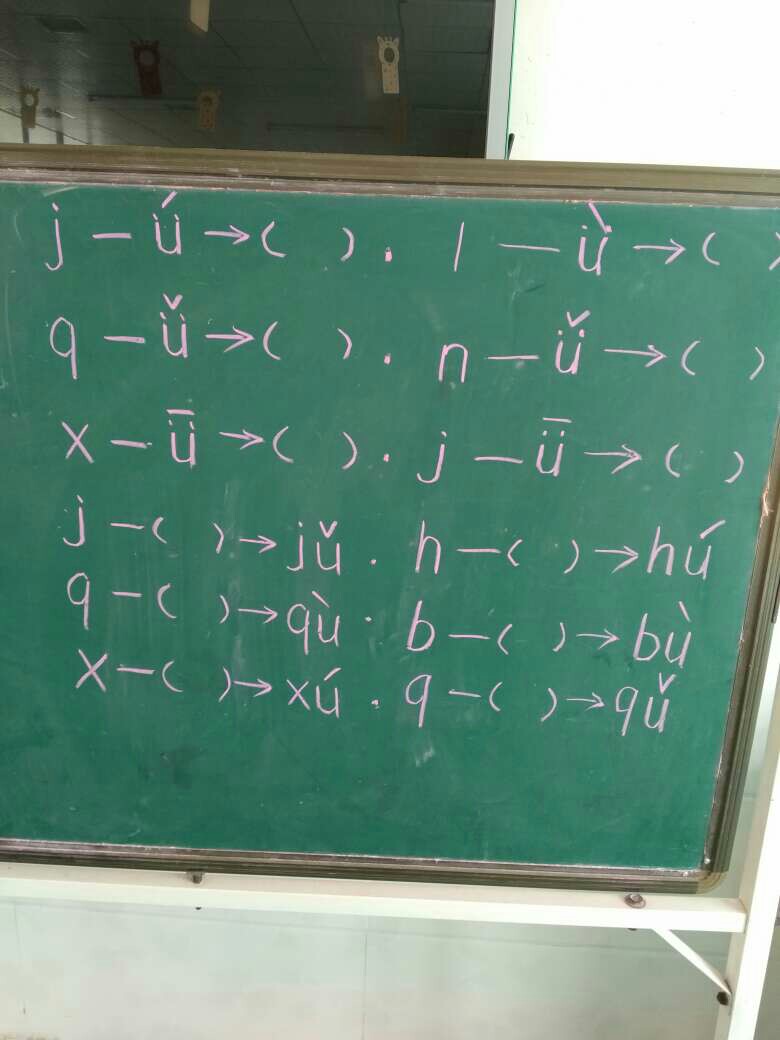 j — ǘ → (  ) . l — ǜ → (  )
q — ǚ → (  ) . n — ǚ → (  )
x — ǖ → (  ) . j — ǖ → (  )
j — (  ) → jǔ . h — (  ) → hú
q — (  ) → qù . b — (  ) → bù
x — (  ) → xú . q — (  ) → qǔ